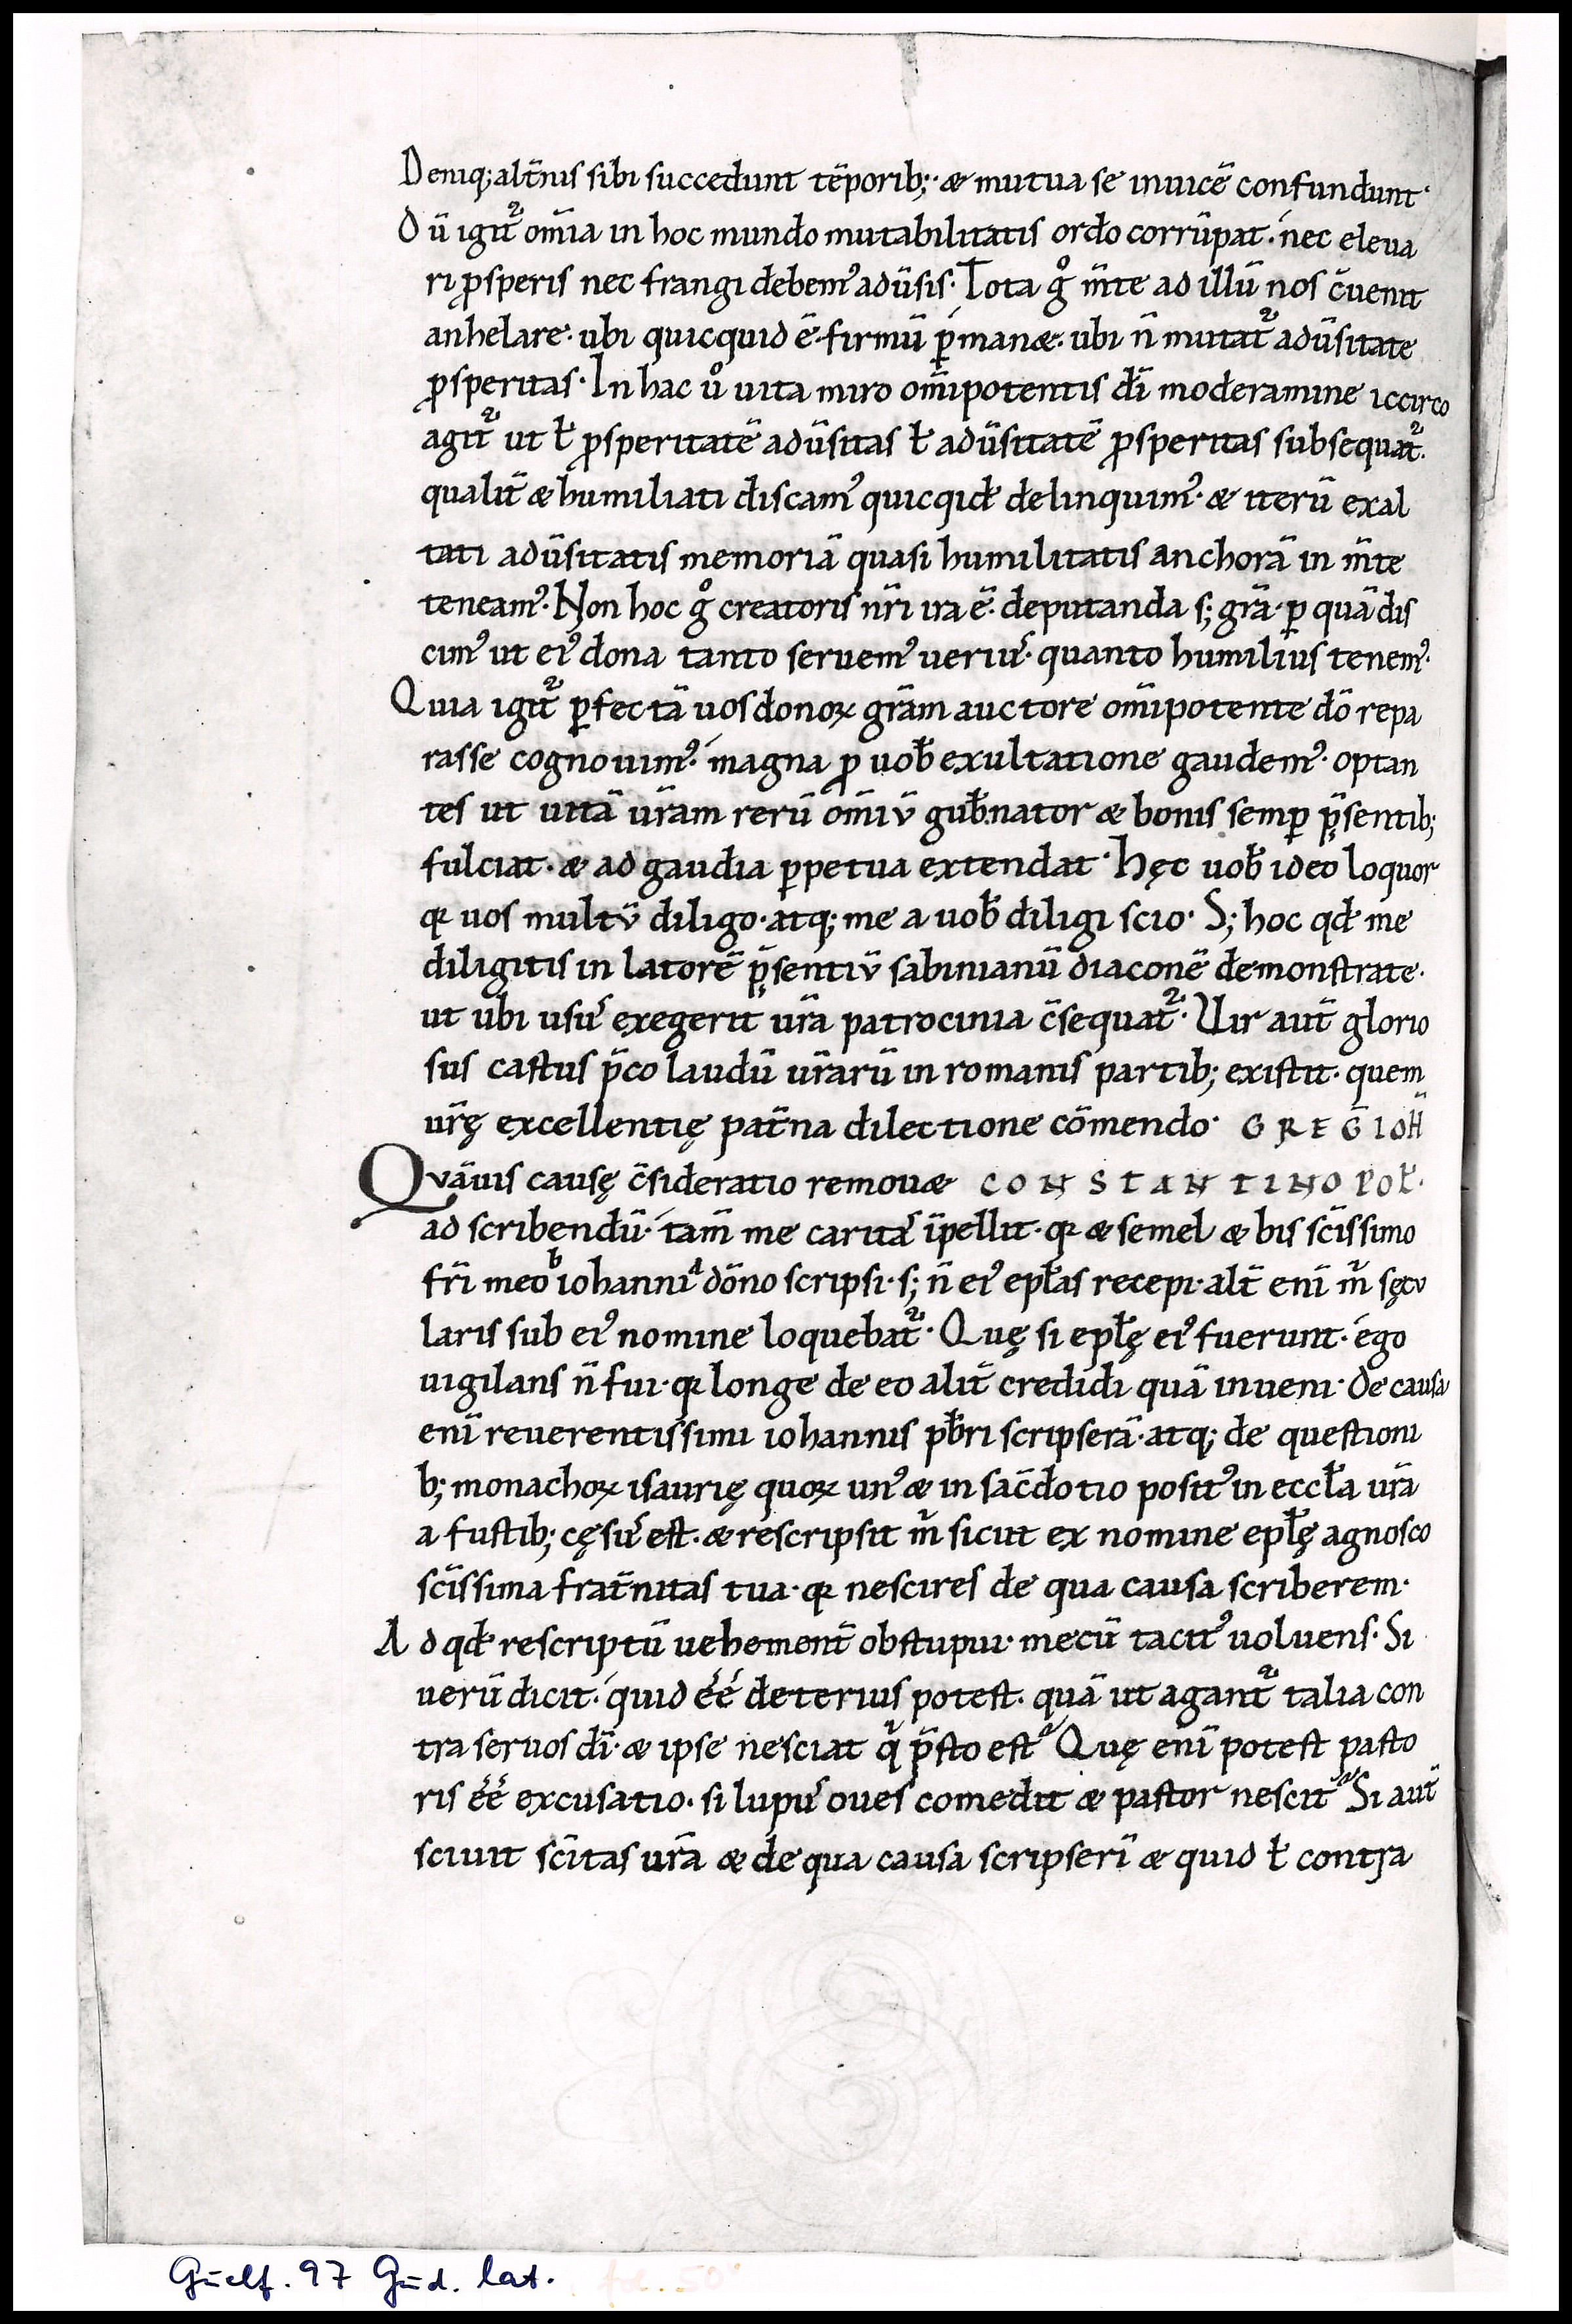 Deniq; alt̄nis sibi succedunt tēporib; · æ mutua se inuicē confundunt·
Dū igit̄² om̄ia in hoc mundo mutabilitatis ordo corrūpat · nec eleua
ri ꝓsperis nec frangi debem᾽ adūsis · Tota g̊ m̄te ad illū nos c̄uenit
anhelare · ubi quicquid ē · firmū ꝑmanæ · ubi n̄ mutat̄² adūsitate
ꝓsperitas · In hac ů uita miro om̄ipotentis dī moderamine iccirco
agit̄² ut ł ꝓsperitatē adūsitas ł adūsitatē ꝓsperitas subsequat̄² ·
qualit̄ æ humiliati discam᾽ quicqid̵ delinquim᾽ · æ iterū exal
tati adūsitatis memoriā quasi humilitatis anchorā in m̄te
teneam᾽ · Non hoc g̊ creatoris nr̄i ira ē · deputanda s; gr̄a · ꝑ quā dis
cim᾽ ut ei᾽ dona tanto seruem᾽ veriu᷒ · quanto humilius tenem᾽ ·
Quia igit̄² ꝑfectā uos donoꝝ gr̄am auctore om̄ipotente dō repa
rasse cognouim᾽ · magna ꝓ uob̄ exultatione gaudem᾽ · optan
tes ut uitā ur̄am rerū om̄iv̄ gub̄nator æ bonis semꝑ p̄sentib;
fulciat · æ ad gaudia ꝑpetua extendat · Hęc uob̄ ideo loquor
qꝛ uos multv̄ diligo · atq; me a uob̄ diligi scio · S; hoc qd̵ me
diligitis in latorē p̄sentiv̄ sabinianū diaconē demonstrate ·
ut ubi usu᷒ exegerit ur̄a patrocinia c̄sequat̄² · Uir aut̄ glorio
sus castus p̄co laudū ur̄arū in romanis partib; existit · quem
ur̄ę excellentię pat̄na dilectione cōmendo · GREG̅ IOH̅
Qvāuis causę c̄sideratio remouæ CONSTANTINOPOŁ ·
ad scribendū · tam̄ me carita᷒ īpellit · qꝛ æ semel æ bis sc̄issimo
fr̄i meo ᵇiohanni ᵃdōno scripsi · s; n̄ ei᾽ epł̄as recepi · alt̄ enī m̄ sęcv
laris sub ei᾽ nomine loquebat̄² · Quę si epł̄ę ei᾽ fuerunt · ego
uigilans n̄ fui · qꝛ longe de eo alit̄ credidi quā inueni · De causa
enī reuerentissimi iohannis pb̄ri scripserā · atq; de questioni
b; monachoꝝ isaurię quoꝝ un᾽ æ in sac̄dotio posit᾽ in eccł̄a ur̄a
a fustib; cęsu᷒ est · æ rescripsit m̄ sicut ex nomine epł̄ę agnosco
sc̄issima frat̄nitas tua · qꝛ nescires de qua causa scriberem ·
Ad qd̵ rescriptū uehement̄ obstupui · mecū tacit᾽ uoluens · Si
uerū dicit · quid éé deterius potest · quā ut agant̄² talia con
tra seruos dī · æ ipse nesciat q̇ p̄sto est? Quę enī potest pasto
ris éé excusatio · si lupu᷒ oues comedit æ pastor nescit? Si aut̄
sciuit sc̄itas ur̄a æ de qua causa scripserī æ quid ł contra
Guelf. 97 Gud. lat.